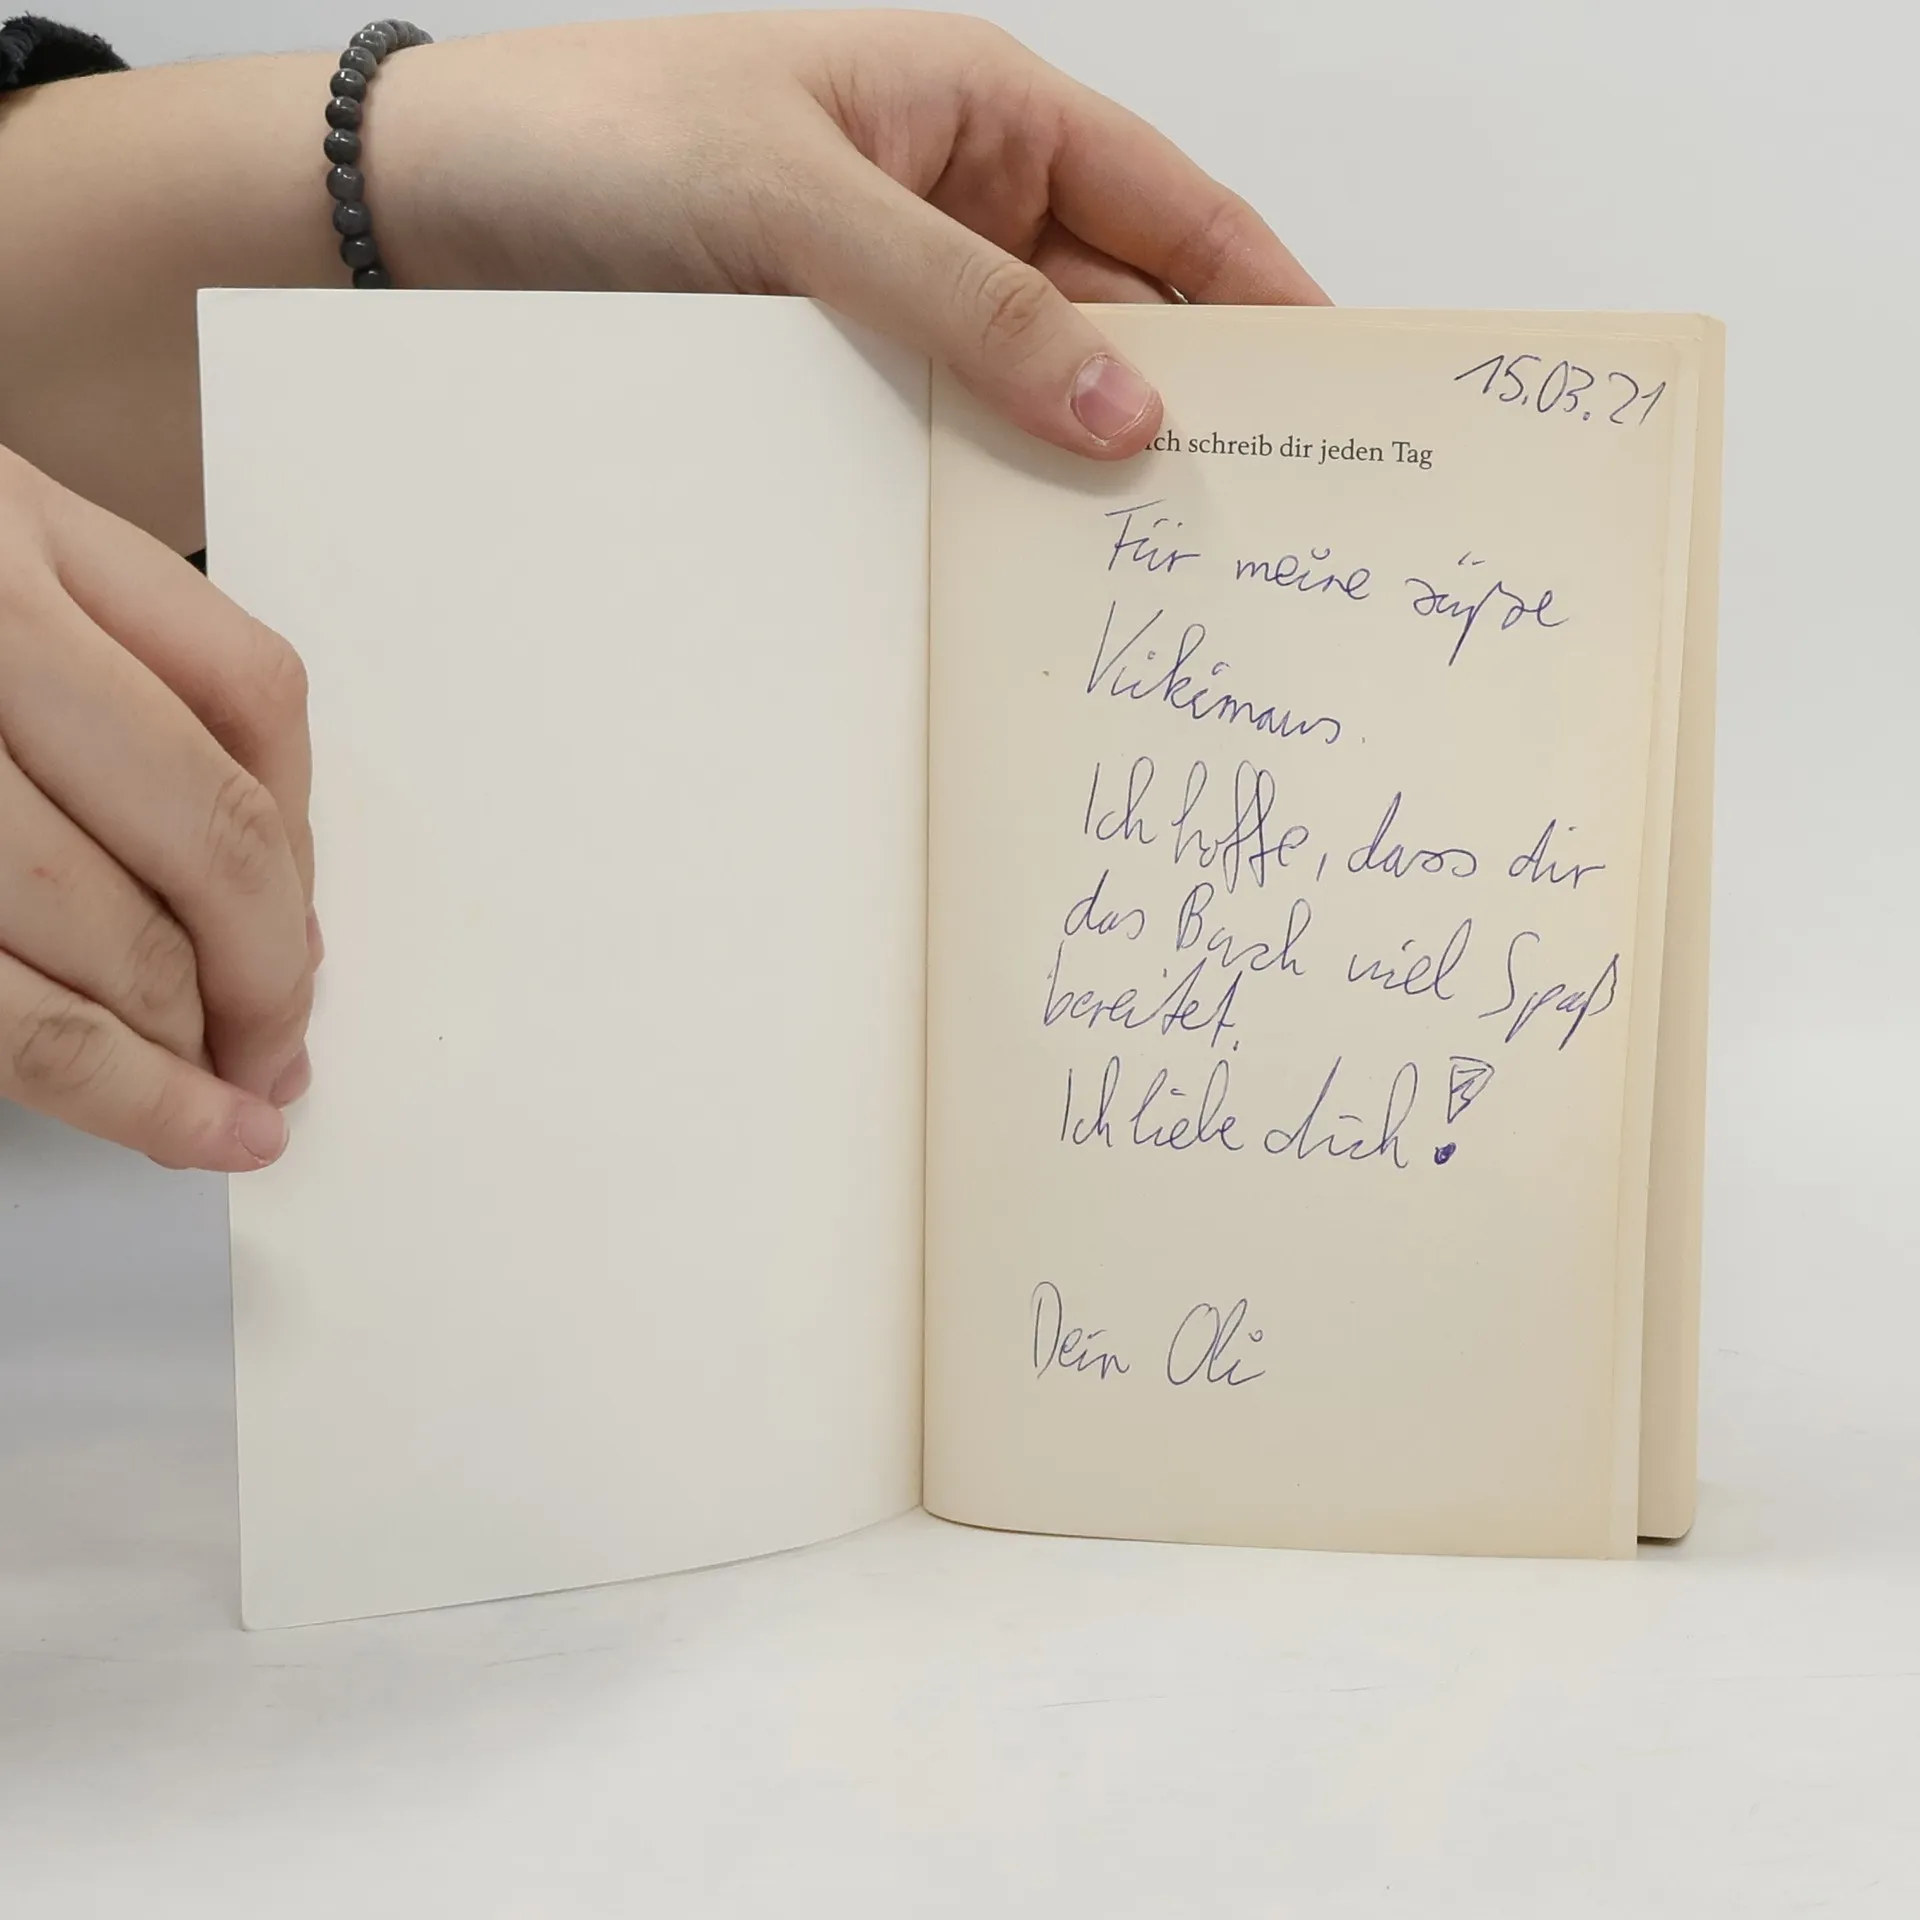 15.03.21
Ich schreib dir jeden Tag
Für meine süße
Vikimaus.
Ich hoffe, dass dir
das Buch viel Spaß
bereitet.
Ich liebe dich!
Dein Oli